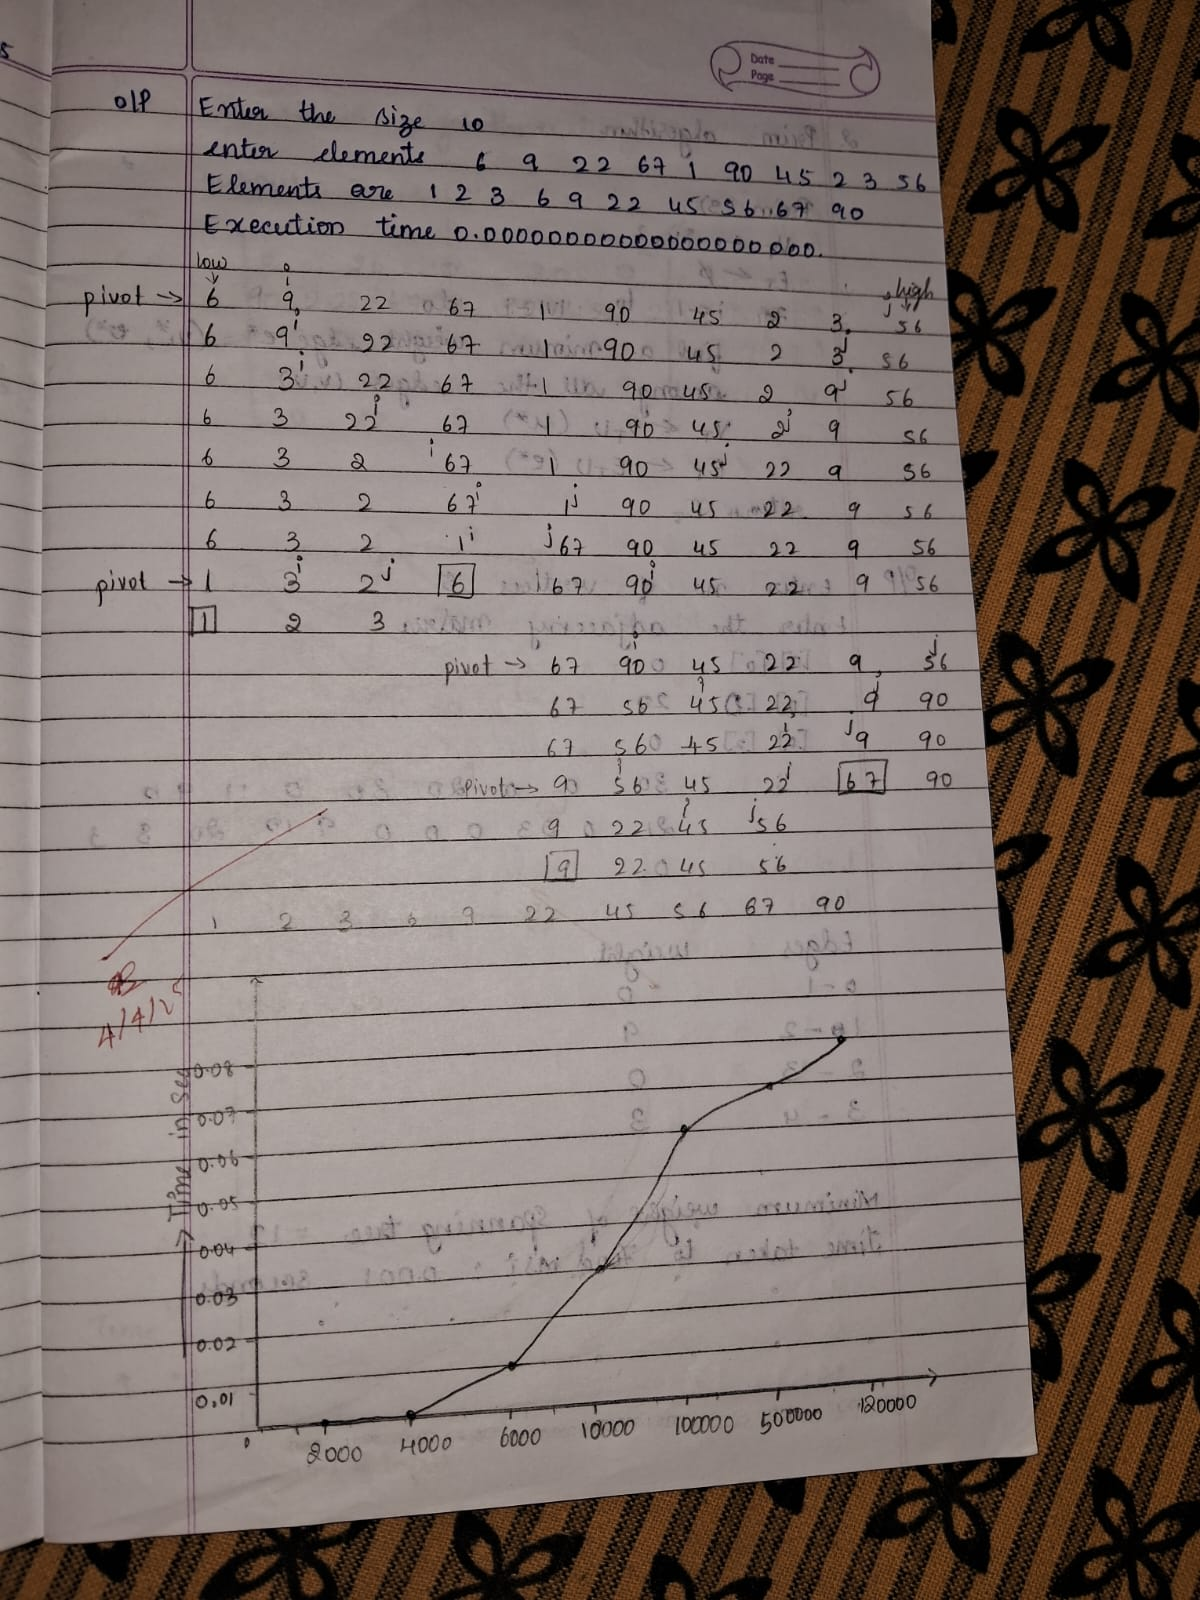 Date
Page
O/P Enter the size 10
enter elements 6 9 22 67 1 90 45 2 3 56
Elements are 1 2 3 6 9 22 45 56 67 90
Execution time 0.00000000000000000000.
low i j high
pivot → 6 9 22 67 1 90 45 2 3 56
6 9 i 22 67 1 90 45 2 3 j 56
6 3 i 22 67 1 90 45 2 9 j 56
6 3 22 i 67 1 90 45 2 j 9 56
6 3 2 i 67 1 90 45 j 22 9 56
6 3 2 67 i 1 j 90 45 22 9 56
6 3 2 1 i j 67 90 45 22 9 56
pivot → 1 3 i 2 j 6 67 90 i 45 22 9 56
1 2 3
pivot → 67 90 i 45 22 9 56 j
67 56 45 i 22 9 j 90
67 56 45 22 i j 9 90
pivot → 9 56 i 45 22 j 67 90
9 22 45 i j 56
9 22 45 56
1 2 3 6 9 22 45 56 67 90
4/4/25
→ Time in Sec
0.08
0.07
0.06
0.05
0.04
0.03
0.02
0.01
0 2000 4000 6000 10000 100000 500000 120000